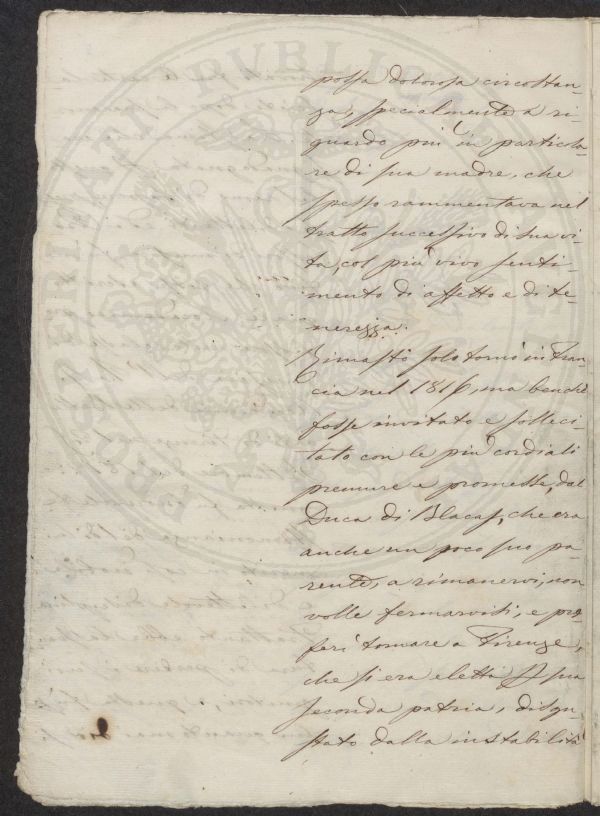 PROSPERITATI PUBLICAE
possa dolorosa circostan-
za, specialmente a ri-
guardo più in particola-
re di sua madre, che
spesso rammentava nel
tratto successivo di sua vi-
ta col più vivo senti-
mento di affetto e di te-
nerezza.
Rimasto solo tornò in Fran-
cia nel 1816, ma benchè
fosse invitato e solleci-
tato con le più cordiali
premure e promesse, dal
Duca di Blacas, che era
anche un poco suo pa-
rente, a rimanervi, non
volle fermarvisi, e pre-
ferì tornare a Firenze,
che si era eletta sua
seconda patria, disgu-
stato dalla instabilità